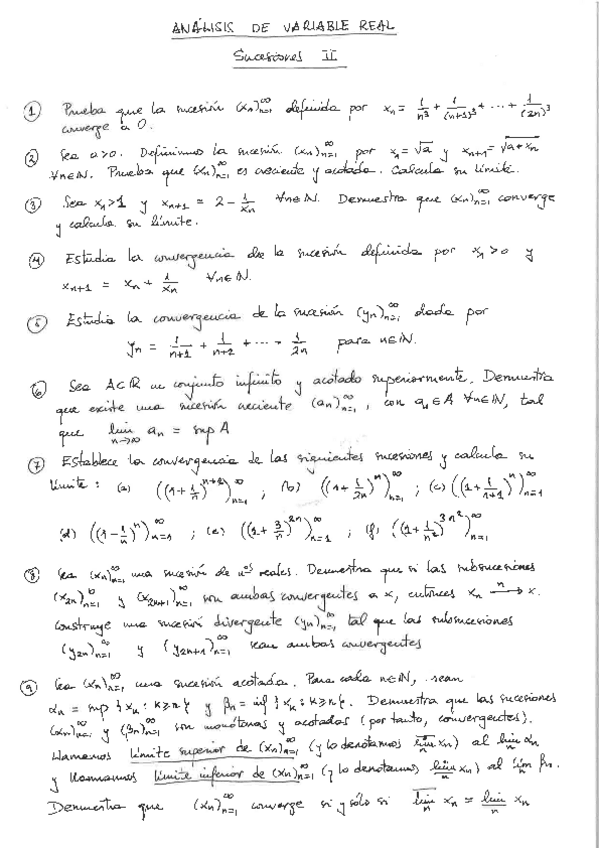 ANÁLISIS DE VARIABLE REAL
Sucesiones II
① Prueba que la sucesión (xₙ)ₙ₌₁^∞ definida por xₙ = 1/n³ + 1/(n+1)³ + ··· + 1/(2n)³
converge a 0.
② Sea a>0. Definimos la sucesión (xₙ)ₙ₌₁^∞ por x₁=√a y xₙ₊₁=√(a+xₙ)
∀n∈ℕ. Prueba que (xₙ)ₙ₌₁^∞ es creciente y acotada. Calcula su límite.
③ Sea x₁>1 y xₙ₊₁ = 2 - 1/xₙ ∀n∈ℕ. Demuestra que (xₙ)ₙ₌₁^∞ converge
y calcula su límite.
④ Estudia la convergencia de la sucesión definida por x₁>0 y
xₙ₊₁ = xₙ + 1/xₙ ∀n∈ℕ.
⑤ Estudia la convergencia de la sucesión (yₙ)ₙ₌₁^∞ dada por
yₙ = 1/(n+1) + 1/(n+2) + ··· + 1/2n para n∈ℕ.
⑥ Sea A⊂ℝ un conjunto infinito y acotado superiormente. Demuestra
que existe una sucesión creciente (aₙ)ₙ₌₁^∞, con aₙ∈A ∀n∈ℕ, tal
que lim n→∞ aₙ = sup A
⑦ Establece la convergencia de las siguientes sucesiones y calcula su
límite: (a) ((1+1/n)^(n+2))ₙ₌₁^∞ ; (b) ((1+1/2n)^n)ₙ₌₁^∞ ; (c) ((1+1/(n+1))^n)ₙ₌₁^∞
(d) ((1-1/n)^n)ₙ₌₁^∞ ; (e) ((1+3/n)^(2n))ₙ₌₁^∞ ; (f) ((1+1/n²)^(3n²))ₙ₌₁^∞
⑧ Sea (xₙ)ₙ₌₁^∞ una sucesión de nºs reales. Demuestra que si las subsucesiones
(x₂ₙ)ₙ₌₁^∞ y (x₂ₙ₊₁)ₙ₌₁^∞ son ambas convergentes a x, entonces xₙ →ⁿ x.
Construye una sucesión divergente (yₙ)ₙ₌₁^∞ tal que las subsucesiones
(y₂ₙ)ₙ₌₁^∞ y (y₂ₙ₊₁)ₙ₌₁^∞ sean ambas convergentes
⑨ Sea (xₙ)ₙ₌₁^∞ una sucesión acotada. Para cada n∈ℕ, sean
αₙ = sup {xₖ : k≥n} y βₙ = inf {xₖ : k≥n}. Demuestra que las sucesiones
(αₙ)ₙ₌₁^∞ y (βₙ)ₙ₌₁^∞ son monótonas y acotadas (por tanto, convergentes).
Llamamos límite superior de (xₙ)ₙ₌₁^∞ (y lo denotamos l̅i̅m̅ₙ xₙ) al limₙ αₙ
y llamamos límite inferior de (xₙ)ₙ₌₁^∞ (y lo denotamos l̲i̲m̲ₙ xₙ) al limₙ βₙ.
Demuestra que (xₙ)ₙ₌₁^∞ converge si y sólo si l̅i̅m̅ₙ xₙ = l̲i̲m̲ₙ xₙ